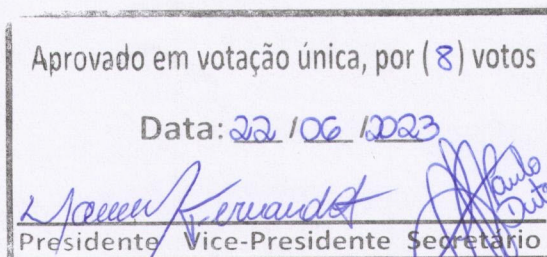 Aprovado em votação única, por (8) votos
Data: 22/06/2023
Fernandes
Paulo
Presidente Vice-Presidente Secretário